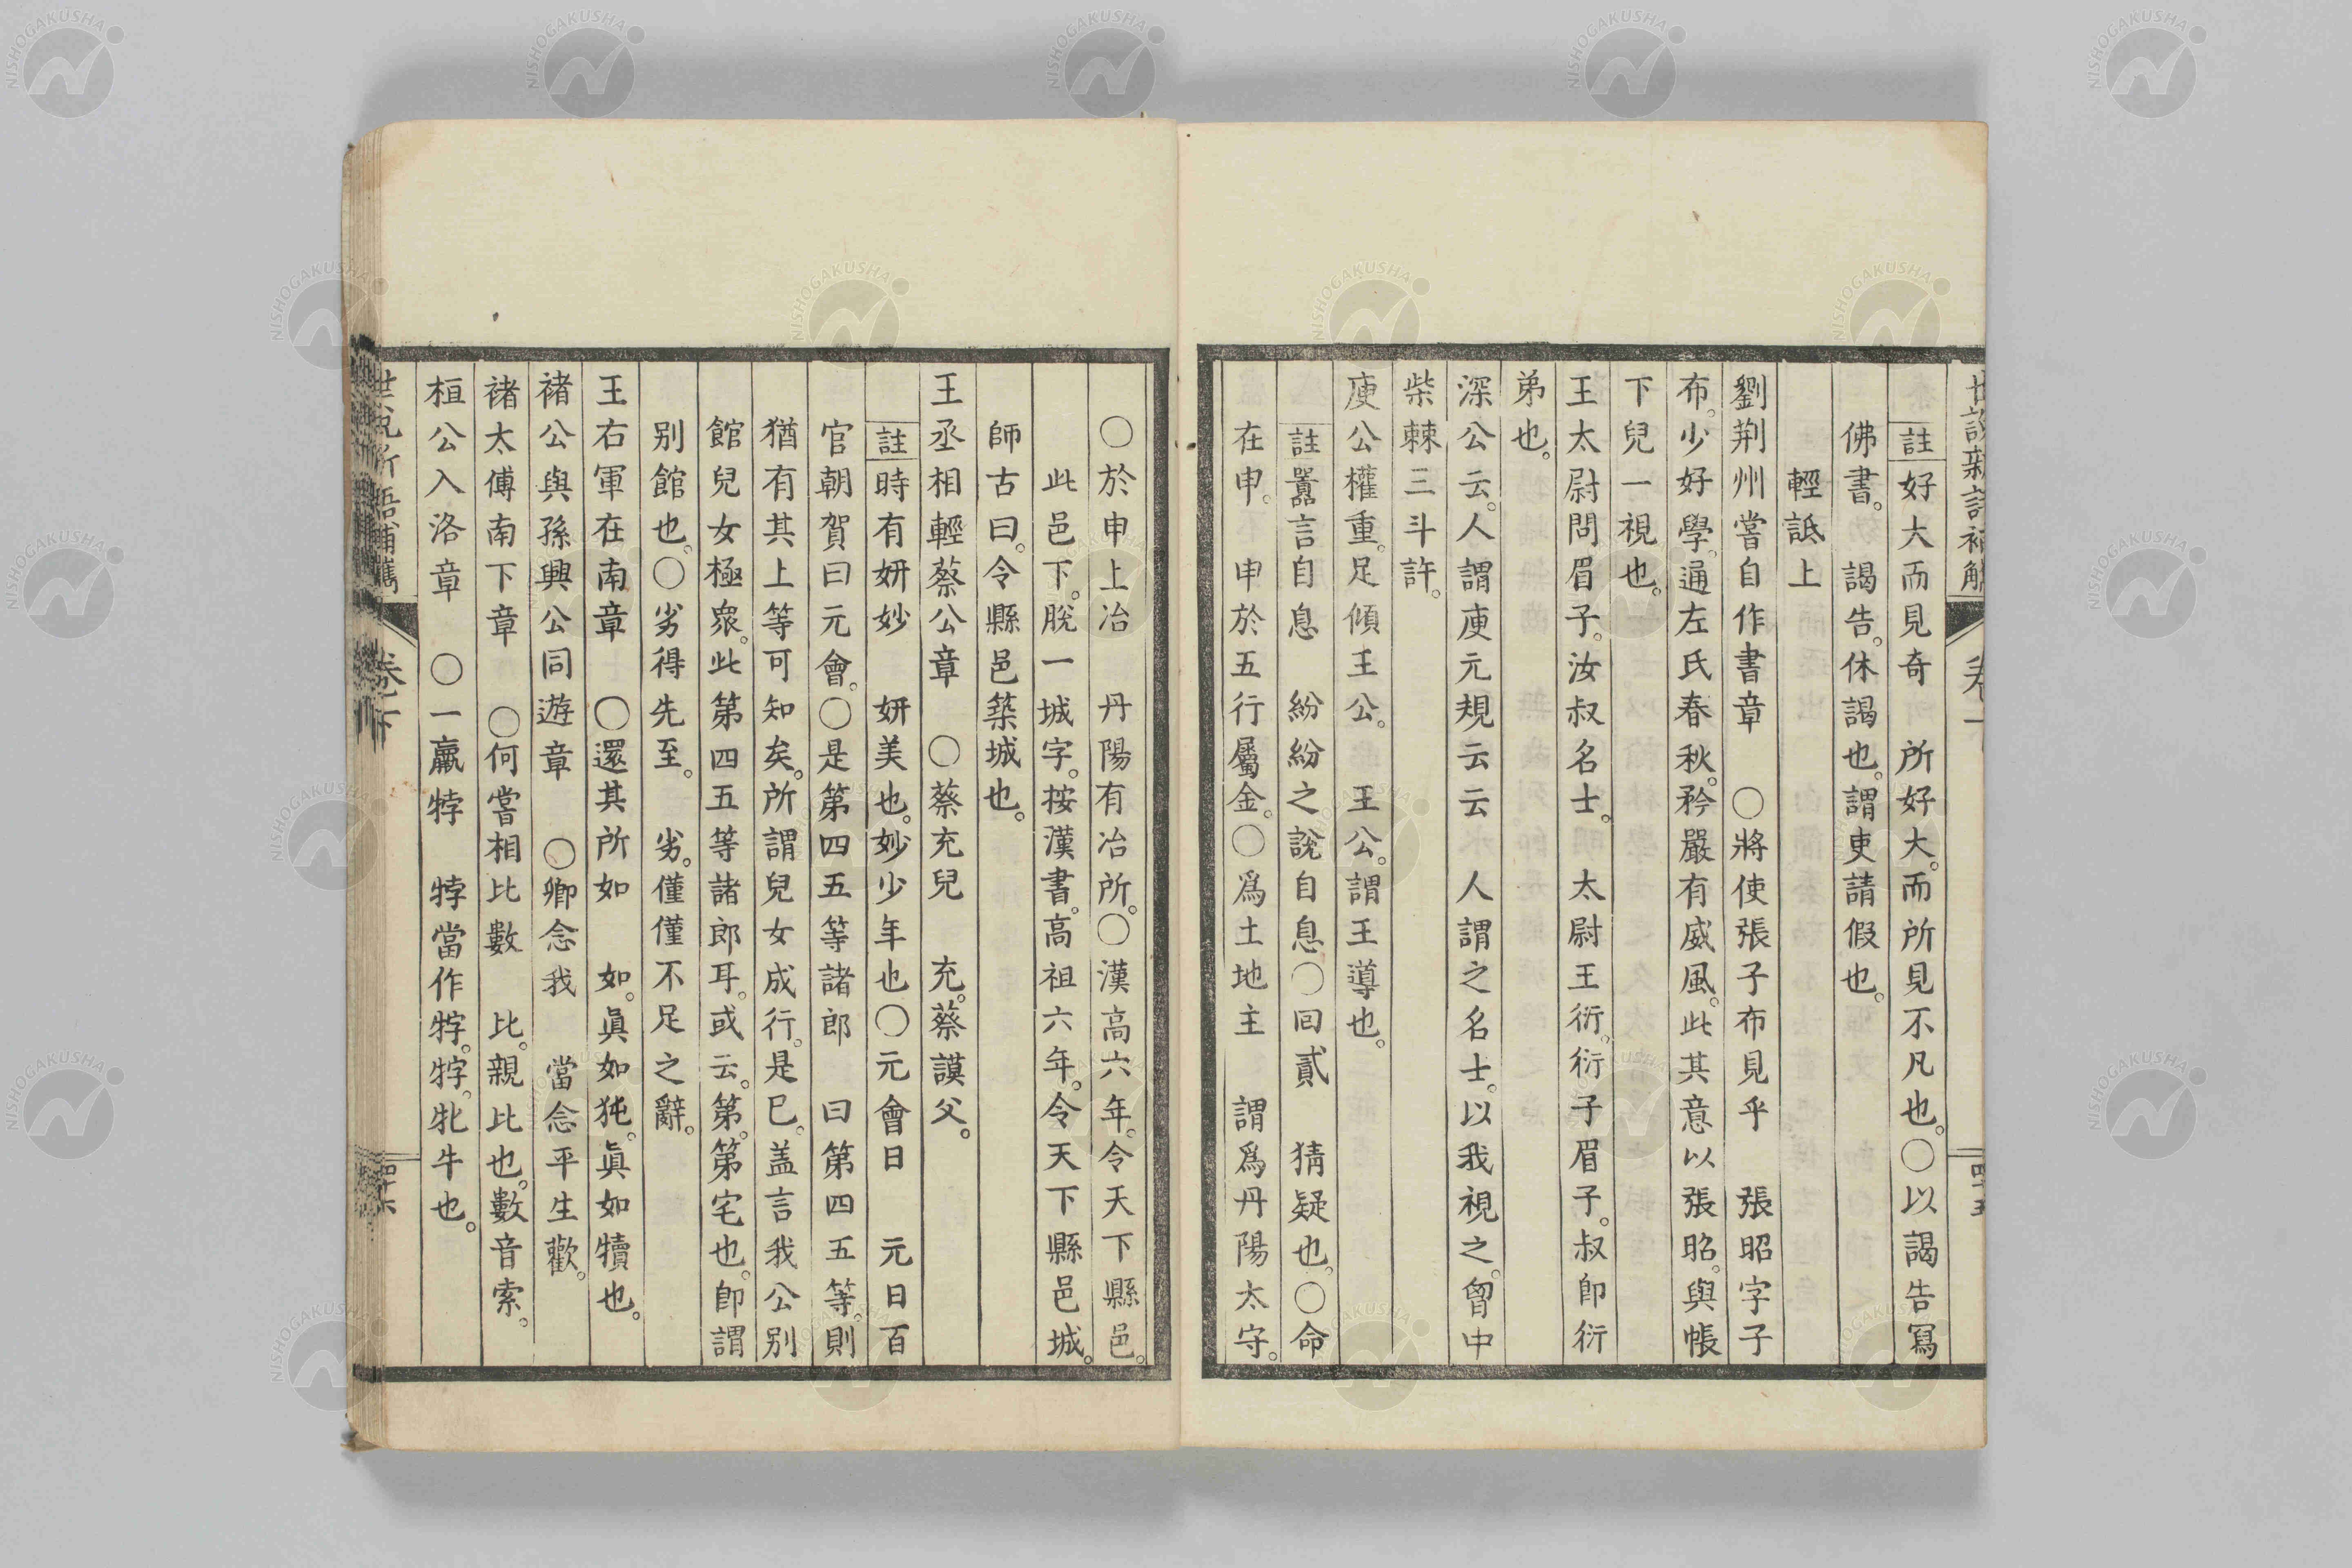 註好大而見奇　所好大。而所見不凡也。〇以謁告寫
佛書。　謁告。休謁也。謂吏請假也。
輕詆上
劉荆州嘗自作書章　〇將使張子布見乎　張昭字子
布。少好學。通左氏春秋。矜嚴有威風。此其意以張昭。與帳
下兒一視也。
王太尉問眉子。汝叔名士。　太尉王衍。衍子眉子。叔卽衍
弟也。
深公云。人謂庾元規云云　人謂之名士。以我視之。曾中
柴棘三斗許。
庾公權重。足傾王公。　王公。謂王導也。
註囂言自息　紛紛之說自息〇回貳　猜疑也。〇命
在申。　申於五行屬金。〇爲土地主　謂爲丹陽太守。
〇於申上冶　丹陽有冶所。〇漢高六年。令天下縣邑。
此邑下。脫一城字。按漢書。高祖六年。令天下縣邑城。
師古曰。令縣邑築城也。
王丞相輕蔡公章　〇蔡充兒　充。蔡謨父。
註時有妍妙　妍美也。妙少年也〇元會日　元日百
官朝賀曰元會。〇是第四五等諸郎　曰第四五等。則
猶有其上等可知矣。所謂兒女成行。是巳。盖言我公別
館兒女極衆。此第四五等諸郎耳。或云。第。第宅也。卽謂
別館也。〇劣得先至。　劣。僅僅不足之辭。
王右軍在南章　〇還其所如　如。眞如㹠。眞如犢也。
褚公與孫興公同遊章　〇卿念我　當念平生歡。
褚太傅南下章　〇何嘗相比數　比。親比也。數音索。
桓公入洛章　〇一羸牸　牸當作牸。牸。牝牛也。
卷一下